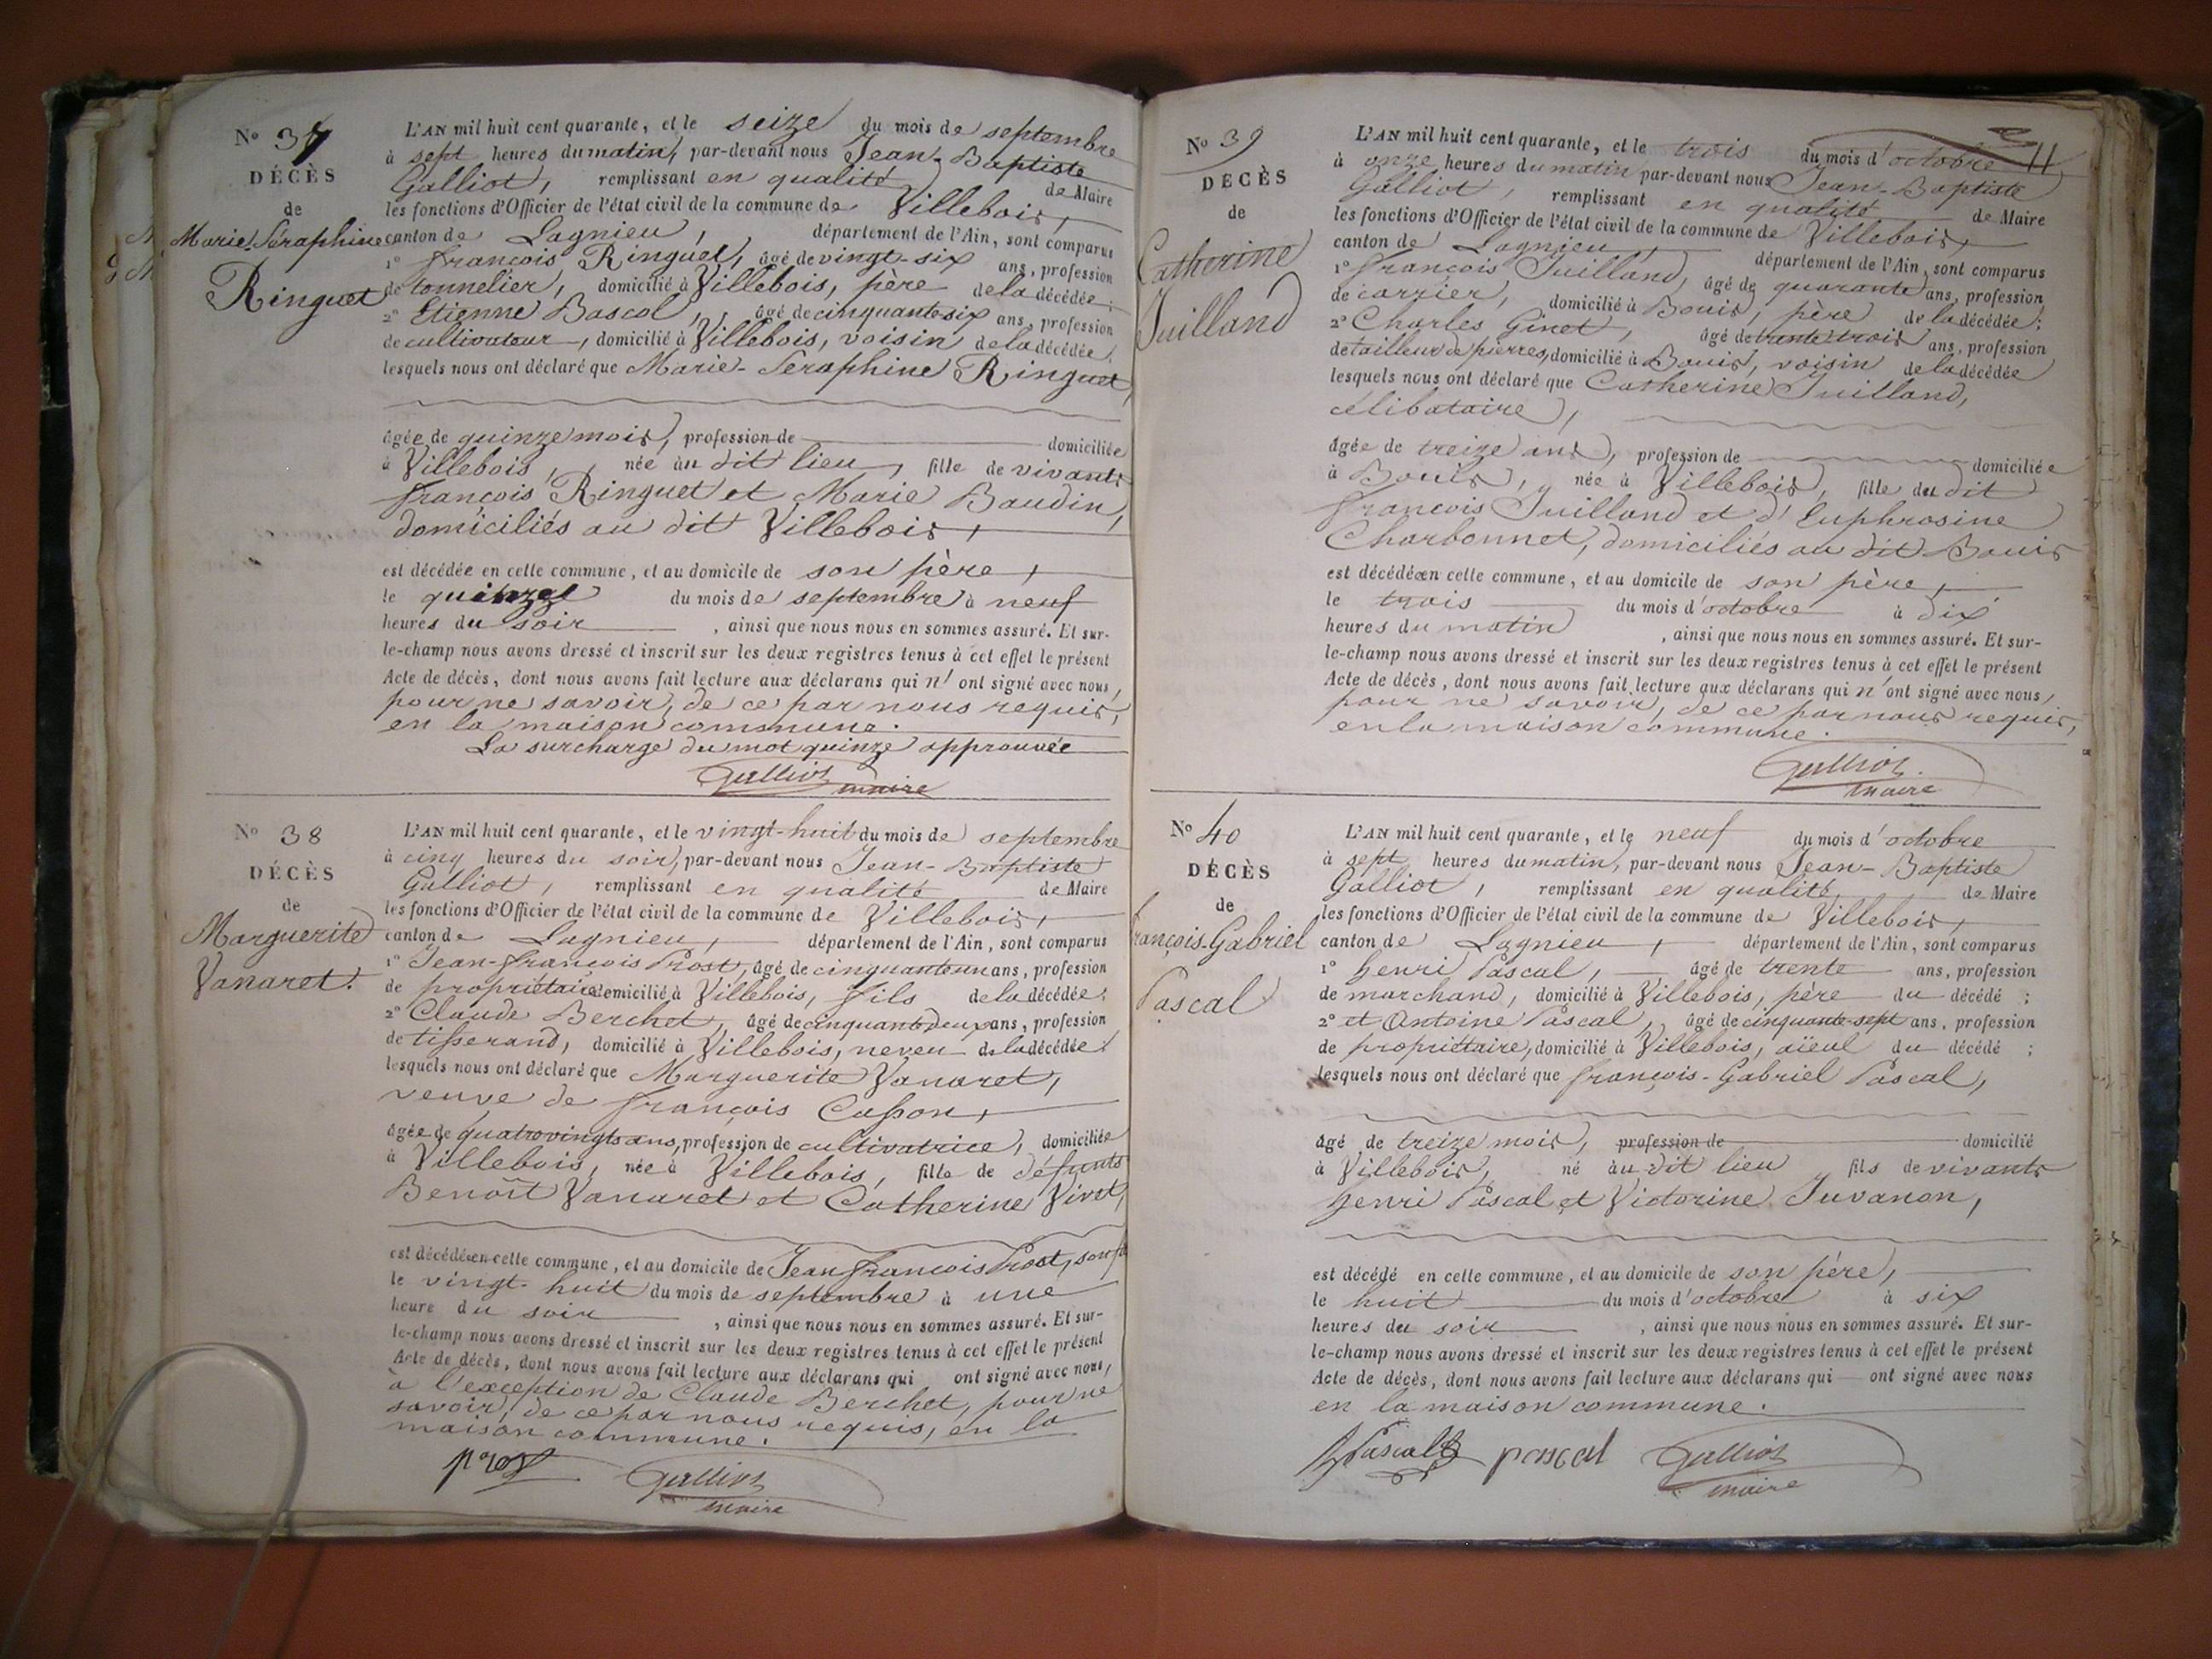 No 37
DÉCÈS
de
Marie Séraphine
Ringuet
L'AN mil huit cent quarante, et le seize du mois de septembre
à sept heures du matin, par-devant nous Jean-Baptiste
Galliot, remplissant en qualité de Maire
les fonctions d'Officier de l'état civil de la commune de Villebois,
canton de Lagnieu, département de l'Ain, sont comparus
1° françois Ringuet, âgé de vingt-six ans, profession
de tonnelier, domicilié à Villebois, père de la décédée;
2° Etienne Bascol, âgé de cinquante six ans, profession
de cultivateur, domicilié à Villebois, voisin de la décédée,
lesquels nous ont déclaré que Marie-Séraphine Ringuet,
âgée de quinze mois, profession de domiciliée
à Villebois, née au dit lieu, fille de vivants
françois Ringuet et Marie Baudin,
domiciliés au dit Villebois,
est décédée en cette commune, et au domicile de son père,
le quinze du mois de septembre à neuf
heures du soir, ainsi que nous nous en sommes assuré. Et sur-
le-champ nous avons dressé et inscrit sur les deux registres tenus à cet effet le présent
Acte de décès, dont nous avons fait lecture aux déclarans qui n'ont signé avec nous,
pour ne savoir, de ce par nous requis,
en la maison commune.
La surcharge du mot quinze approuvée
Galliot
maire
No 38
DÉCÈS
de
Marguerite
Vanaret.
L'AN mil huit cent quarante, et le vingt-huit du mois de septembre
à cinq heures du soir, par-devant nous Jean-Baptiste
Galliot, remplissant en qualité de Maire
les fonctions d'Officier de l'état civil de la commune de Villebois,
canton de Lagnieu, département de l'Ain, sont comparus
1° Jean-françois Prost, âgé de cinquante un ans, profession
de propriétaire domicilié à Villebois, fils de la décédée;
2° Claude Berchet, âgé de cinquante deux ans, profession
de tisserand, domicilié à Villebois, neveu de la décédée;
lesquels nous ont déclaré que Marguerite Vanaret,
veuve de françois Casson,
âgée de quatre vingts ans, profession de cultivatrice, domiciliée
à Villebois, née à Villebois, fille de défunts
Benoît Vanaret et Catherine Vivet,
est décédée en cette commune, et au domicile de Jean françois Prost, son
le vingt-huit du mois de septembre à une
heure du soir, ainsi que nous nous en sommes assuré. Et sur-
le-champ nous avons dressé et inscrit sur les deux registres tenus à cet effet le présent
Acte de décès, dont nous avons fait lecture aux déclarans qui ont signé avec nous,
à l'exception de Claude Berchet, pour ne
savoir, de ce par nous requis, en la
maison commune.
prost Galliot
maire
11
No 39
DÉCÈS
de
Catherine
Juilland
L'AN mil huit cent quarante, et le trois du mois d'octobre
à onze heures du matin par-devant nous Jean-Baptiste
Galliot, remplissant en qualité de Maire
les fonctions d'Officier de l'état civil de la commune de Villebois,
canton de Lagnieu, département de l'Ain, sont comparus
1° françois Juilland, âgé de quarante ans, profession
de carrier, domicilié à Bouis, père de la décédée;
2° Charles Ginet, âgé de trente trois ans, profession
de tailleur de pierres, domicilié à Bouis, voisin de la décédée
lesquels nous ont déclaré que Catherine Juilland,
célibataire,
âgée de treize ans, profession de domiciliée
à Bouis, née à Villebois, fille du dit
françois Juilland et d'Euphrosine
Charbonnet, domiciliés au dit Bouis
est décédée en cette commune, et au domicile de son père,
le trois du mois d'octobre à dix
heures du matin, ainsi que nous nous en sommes assuré. Et sur-
le-champ nous avons dressé et inscrit sur les deux registres tenus à cet effet le présent
Acte de décès, dont nous avons fait lecture aux déclarans qui n'ont signé avec nous,
pour ne savoir, de ce par nous requis,
en la maison commune.
Galliot
maire
No 40
DÉCÈS
de
françois-Gabriel
Pascal
L'AN mil huit cent quarante, et le neuf du mois d'octobre
à sept heures du matin, par-devant nous Jean-Baptiste
Galliot, remplissant en qualité de Maire
les fonctions d'Officier de l'état civil de la commune de Villebois,
canton de Lagnieu, département de l'Ain, sont comparus
1° henri Pascal, âgé de trente ans, profession
de marchand, domicilié à Villebois, père du décédé;
2° et Antoine Pascal, âgé de cinquante-sept ans, profession
de propriétaire, domicilié à Villebois, aïeul du décédé;
lesquels nous ont déclaré que françois-Gabriel Pascal,
âgé de treize mois, profession de domicilié
à Villebois, né au dit lieu fils de vivants
henri Pascal et Victorine Juvanon,
est décédé en cette commune, et au domicile de son père,
le huit du mois d'octobre à six
heures du soir, ainsi que nous nous en sommes assuré. Et sur-
le-champ nous avons dressé et inscrit sur les deux registres tenus à cet effet le présent
Acte de décès, dont nous avons fait lecture aux déclarans qui ont signé avec nous
en la maison commune.
Pascal pascal Galliot
maire